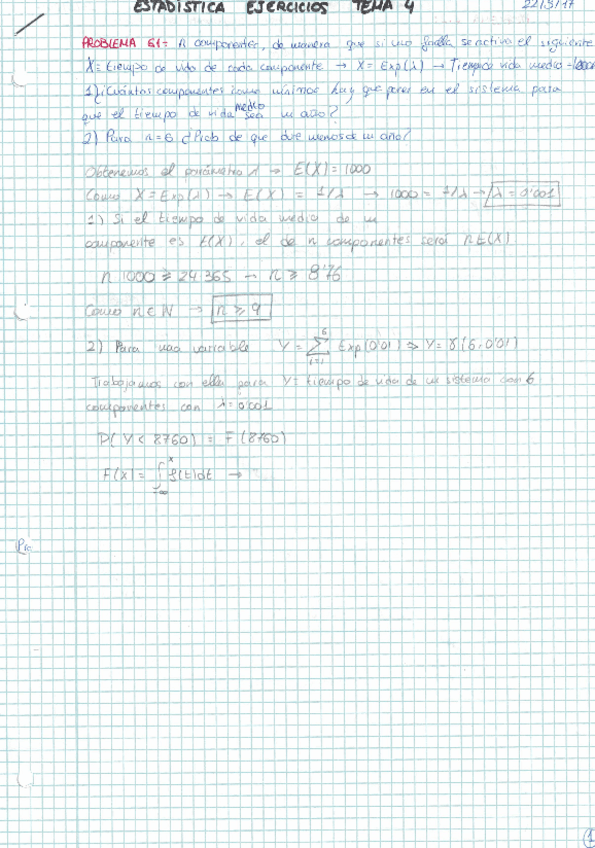 ESTADÍSTICA EJERCICIOS TEMA 4 22/3/17
PROBLEMA 6.1- n componentes, de manera que si uno falla se activa el siguiente
X = tiempo de vida de cada componente → X = Exp(λ) → Tiempo vida medio = 1000
1) ¿Cuántas componentes como mínimo hay que poner en el sistema para
que el tiempo de vida medio sea un año?
2) Para n=6 ¿Prob de que dure menos de un año?
Obtenemos el parámetro λ → E(X) = 1000
Como X = Exp(λ) → E(X) = 1/λ → 1000 = 1/λ → λ = 0'001
1) Si el tiempo de vida medio de un
componente es E(X), el de n componentes será n E(X)
n 1000 ≥ 24·365 → n ≥ 8'76
Como n ∈ N → n ≥ 9
2) Para una variable Y = Σ_{i=1}^{6} Exp(0'01) ⇒ Y = γ(6, 0'01)
Trabajamos con ella para Y = tiempo de vida de un sistema con 6
componentes con λ = 0'001
P(Y < 8760) = F(8760)
F(x) = ∫_{-∞}^{x} f(t)dt →
Pro
1